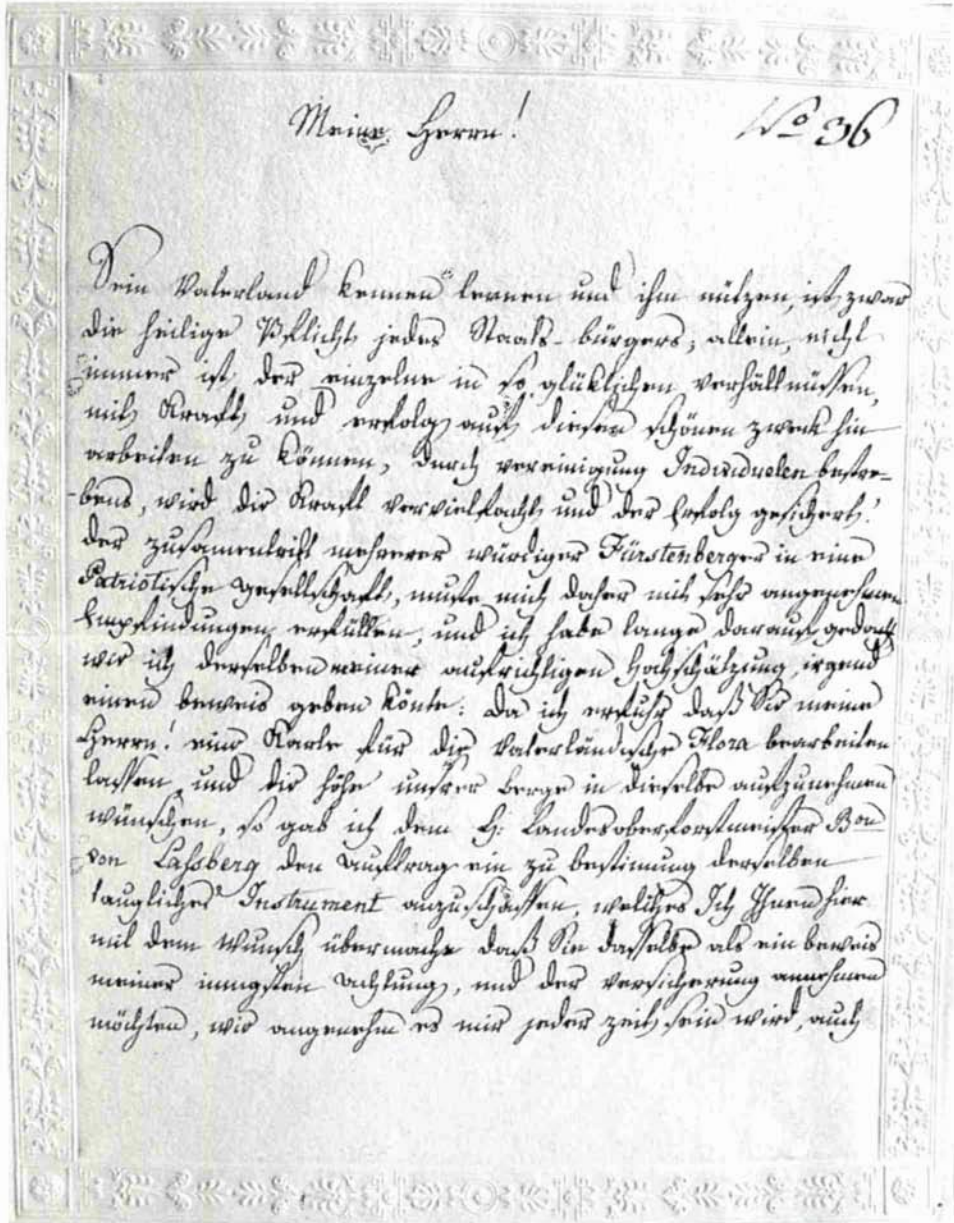 Meine Herrn!
No 36
Sein Vaterland kennen lernen und ihm nützen, ist zwar
die heilige Pflicht jedes Staats-bürgers; allein, nicht
immer ist der einzelne in so glüklichen verhältnüssen,
mit Kraft und erfolg auf diesen schönen zwek hin
arbeiten zu können, durch vereinigung Individuelen bestre-
bens, wird die Kraft vervielfacht und der Erfolg gesichert!
der zusamentrift mehrerer würdiger Fürstenberger in eine
Patriotische gesellschaft, muste mich daher mit sehr angenehmen
Empfindungen erfüllen, und ich habe lange darauf gedacht
wie ich derselben meiner aufrichtigen Hochschätzung, irgend
einen beweis geben könte: Da ich erfuhr daß Sie meine
Herrn! eine Karte für die Vaterländische Flora bearbeiten
lassen, und die höhe unsrer berge in dieselbe aufzunehmen
wünschen, so gab ich dem H: Landesoberforstmeister Bon
von Laßberg den auftrag ein zu bestimung derselben
taugliches Instrument anzuschaffen, welches Ich Ihnen hier
mit dem Wunsch übermache daß Sie dasselbe als ein beweis
meiner innigsten achtung, und der versicherung annehmen
möchten, wie angenehm es mir jeder zeit sein wird, auch